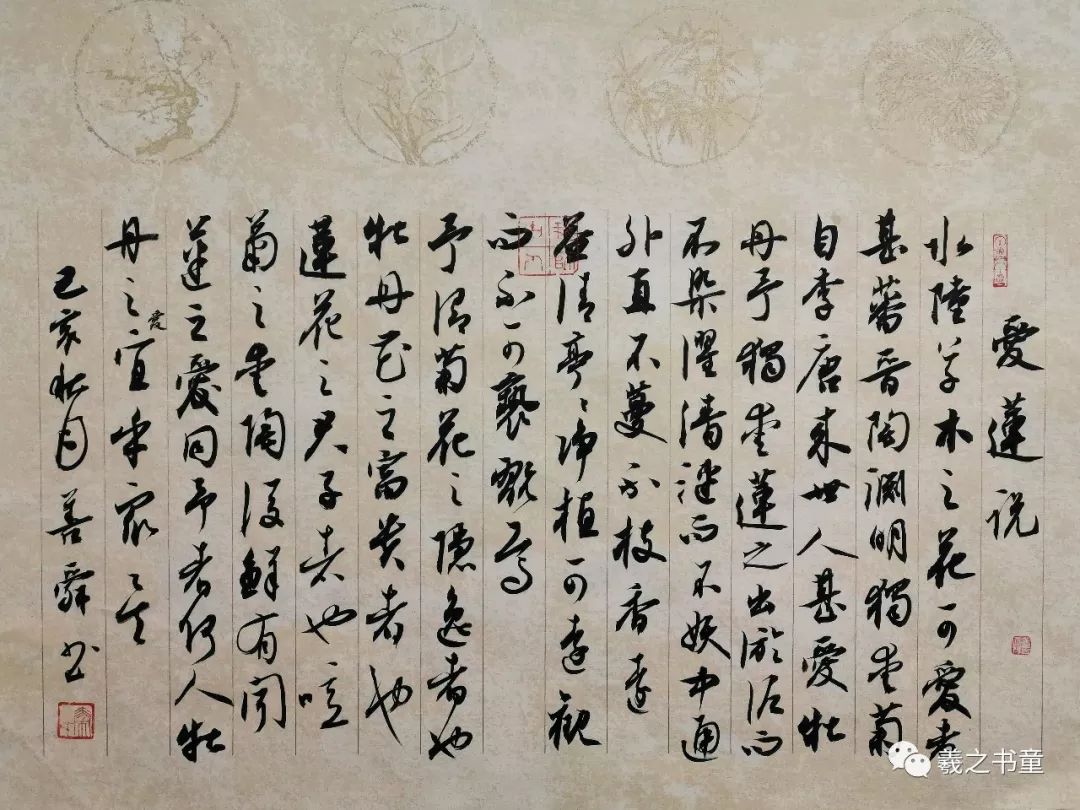 愛蓮説
水陸草木之花可愛者
甚蕃晋陶淵明獨愛菊
自李唐来世人甚愛牡
丹予獨愛蓮之出淤泥而
不染濯清漣而不妖中通
外直不蔓不枝香遠
益清亭〻净植可遠觀
而不可褻翫焉
予謂菊花之隱逸者也
牡丹花之富贵者也
蓮花之君子者也噫
菊之愛陶後鮮有聞
蓮之愛同予者何人牡
丹之愛宜乎衆矣
己亥秋月善舜书
羲之书童